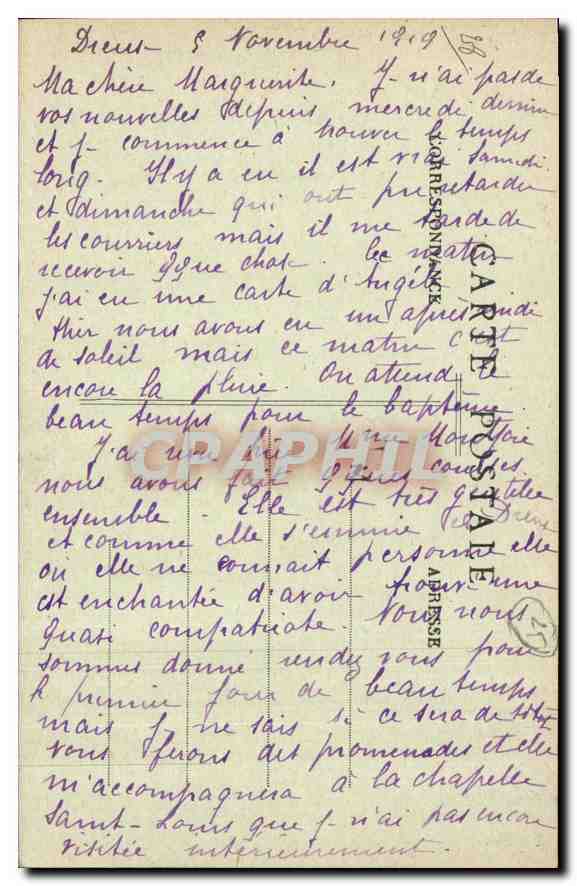 Dreux 5 Novembre 1919
Ma chère Marguerite. Je n'ai pas de
vos nouvelles depuis mercredi dernier
et je commence à trouver le temps
long. Il y a eu il est vrai Samedi
et dimanche qui ont pu retarder
les courriers mais il me tarde de
recevoir qque chose. Ce matin
j'ai eu une carte d'Angèle
Hier nous avons eu un après midi
de soleil mais ce matin c'est
encore la pluie. On attend le
beau temps pour le baptême.
J'ai vu hier Mme
nous avons fait qques courses
ensemble. Elle est très gentille
et comme elle s'ennuie à Dreux
où elle ne connait personne elle
est enchantée d'avoir trouvé une
quasi compatriote. Nous nous
sommes donné rendez vous pour
le premier jour de beau temps
mais je ne sais si ce sera de sitôt
Nous ferons des promenades et elle
m'accompagnera à la chapelle
Saint-Louis que je n'ai pas encore
visitée intérieurement.
CARTE POSTALE
CORRESPONDANCE
ADRESSE
CPRAPHIL
25